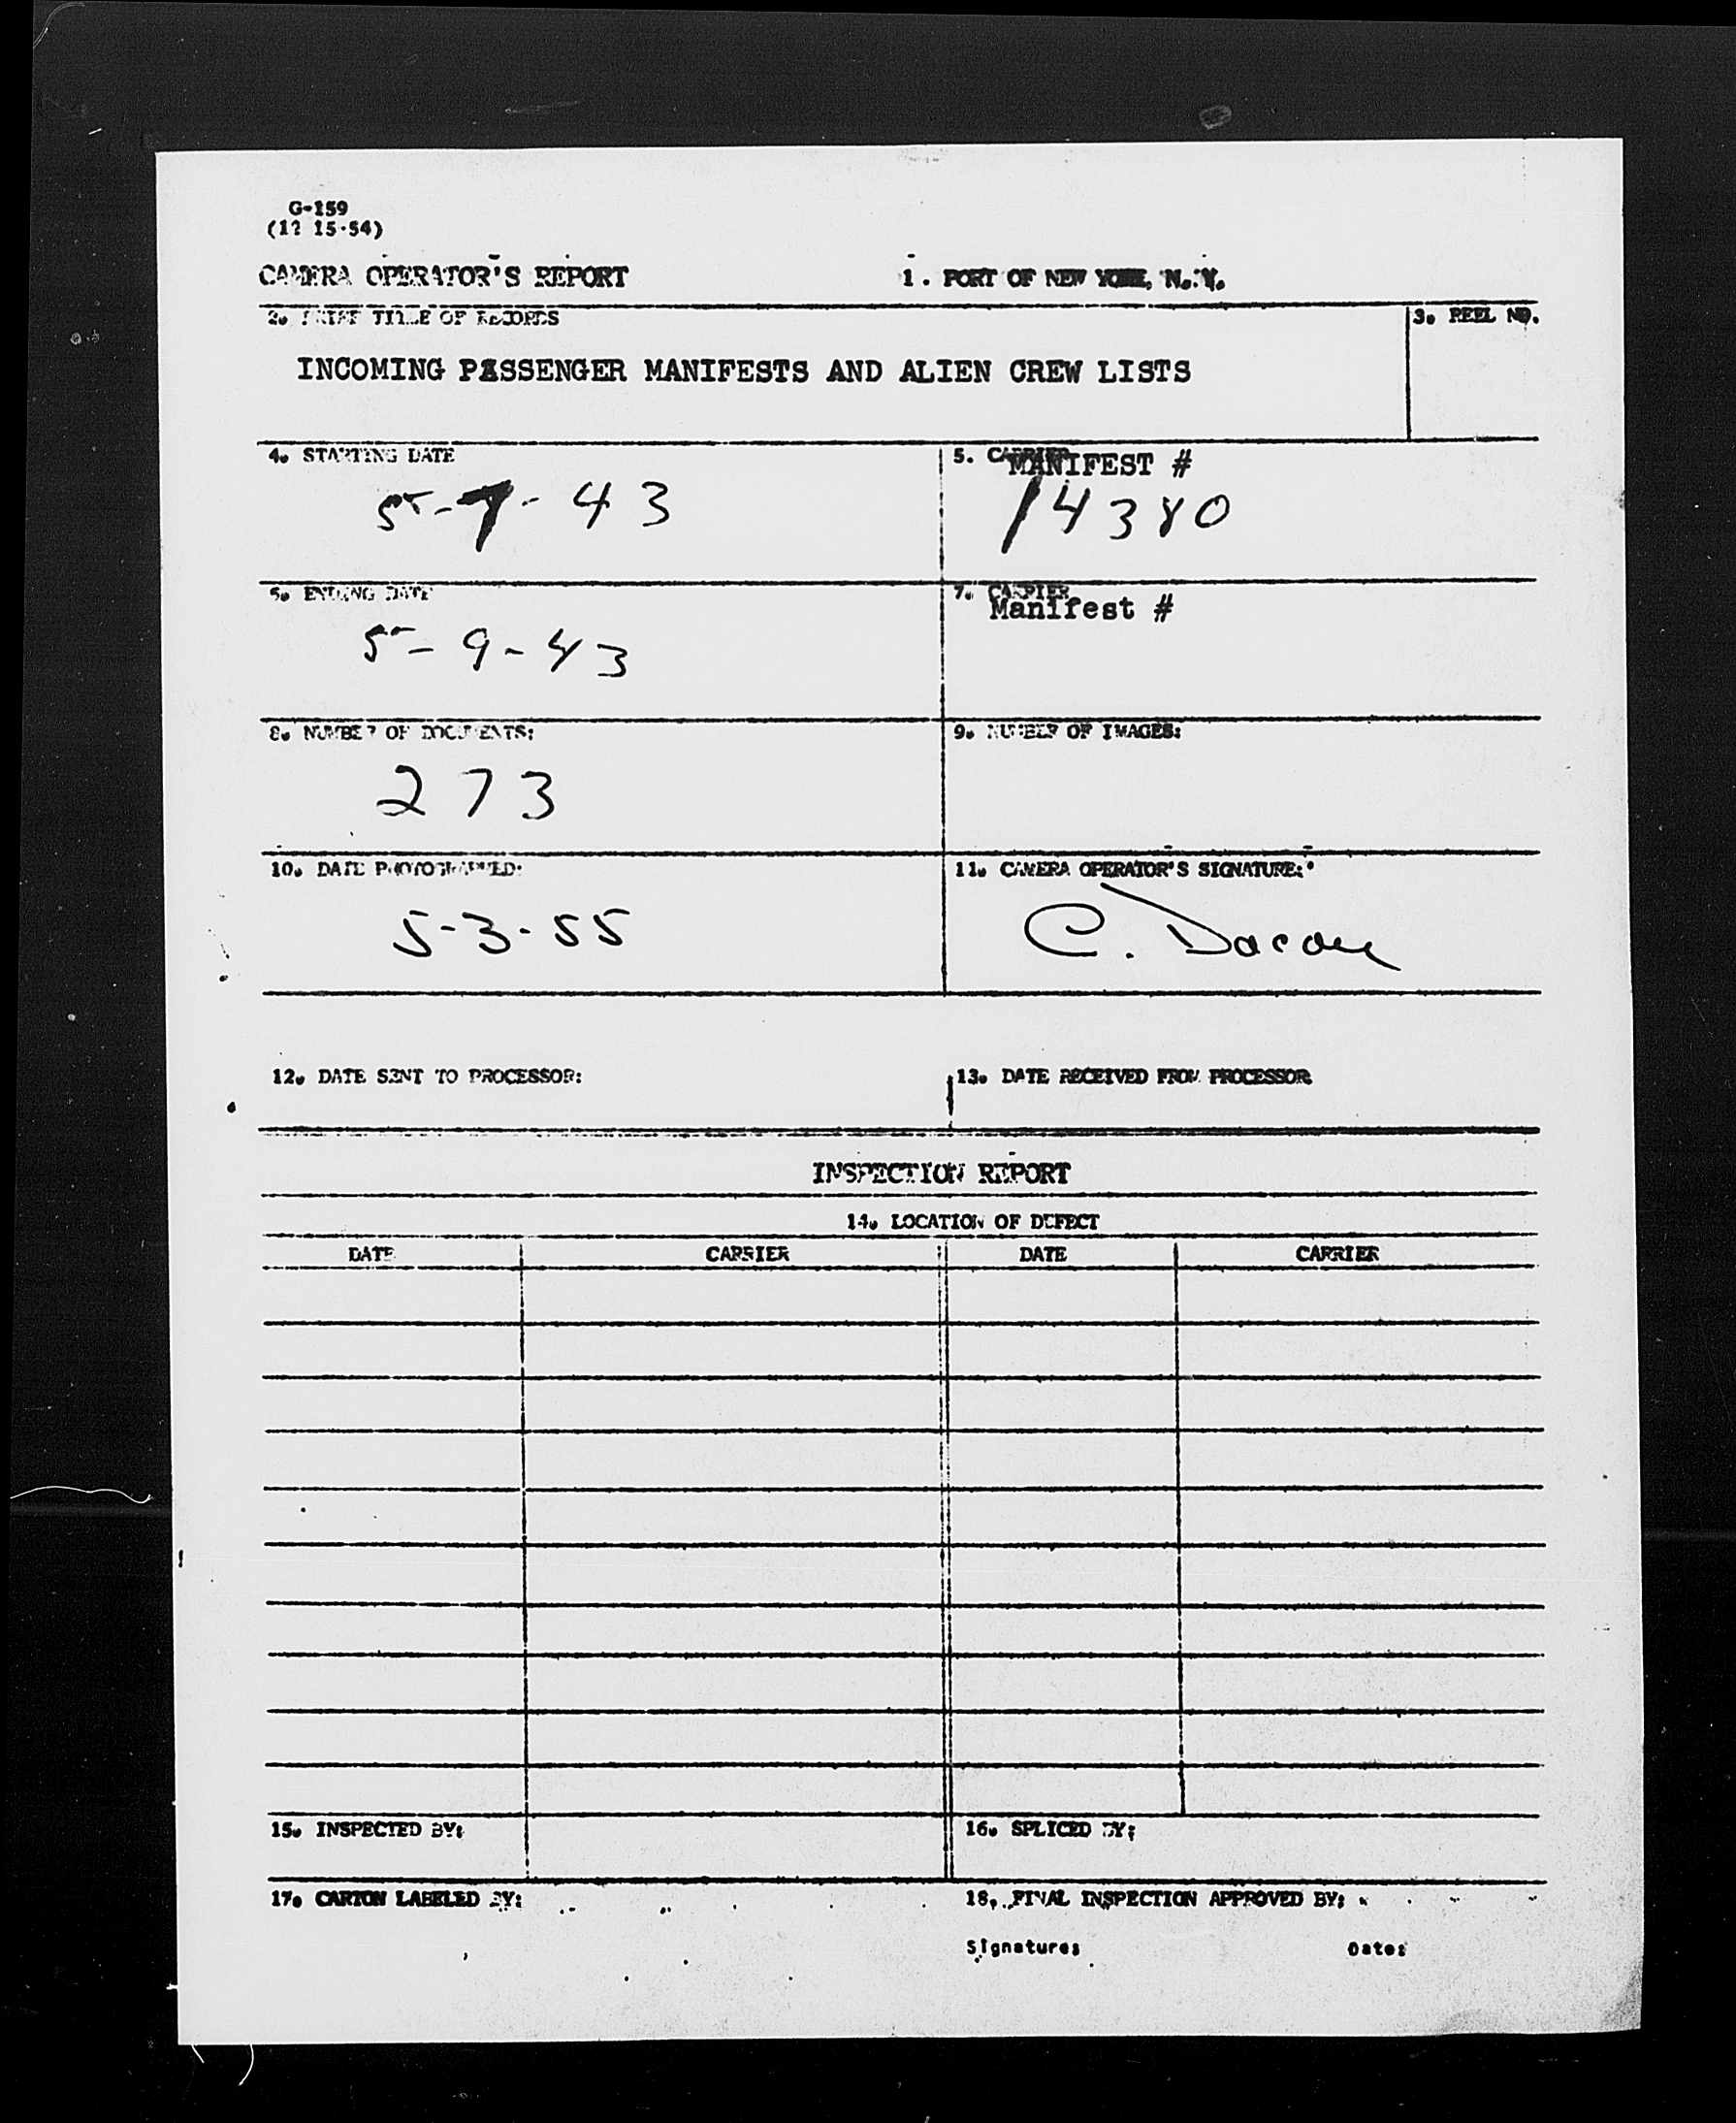 G-159
(12 15-54)
CAMERA OPERATOR'S REPORT
1. PORT OF NEW YORK, N.Y.
2. BRIEF TITLE OF RECORDS
3. REEL NO.
INCOMING PASSENGER MANIFESTS AND ALIEN CREW LISTS
4. STARTING DATE
5. CARRIER
MANIFEST #
5-7-43
14380
6. ENDING DATE
7. CARRIER
Manifest #
5-9-43
8. NUMBER OF DOCUMENTS:
9. NUMBER OF IMAGES:
273
10. DATE PHOTOGRAPHED:
11. CAMERA OPERATOR'S SIGNATURE:
5-3-55
C.
12. DATE SENT TO PROCESSOR:
13. DATE RECEIVED FROM PROCESSOR
INSPECTION REPORT
14. LOCATION OF DEFECT
DATE CARRIER DATE CARRIER
15. INSPECTED BY:
16. SPLICED BY:
17. CARTON LABELED BY:
18. FINAL INSPECTION APPROVED BY:
Signature: Date: